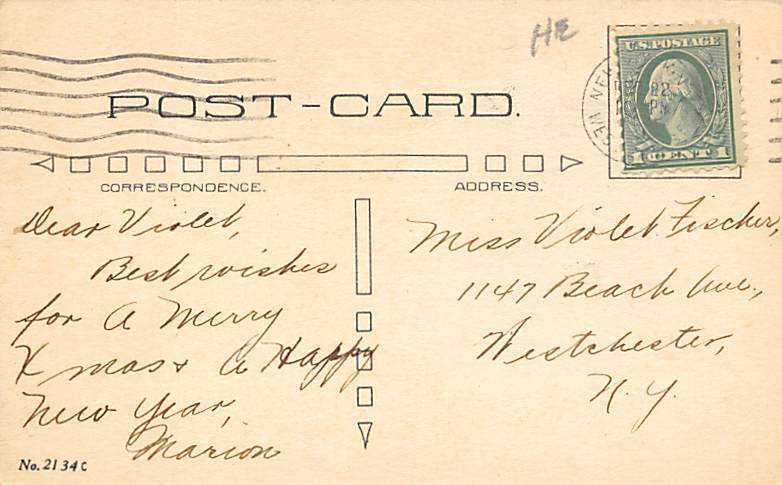 HE
U.S. POSTAGE
22
PM
1 CENT 1
POST-CARD.
CORRESPONDENCE.
ADDRESS.
Dear Violet,
Best wishes
for A Merry
Xmas & A Happy
New Year,
Marion
Miss Violet Fischer,
1147 Beach Ave.,
Westchester,
N. Y.
No. 2134 C